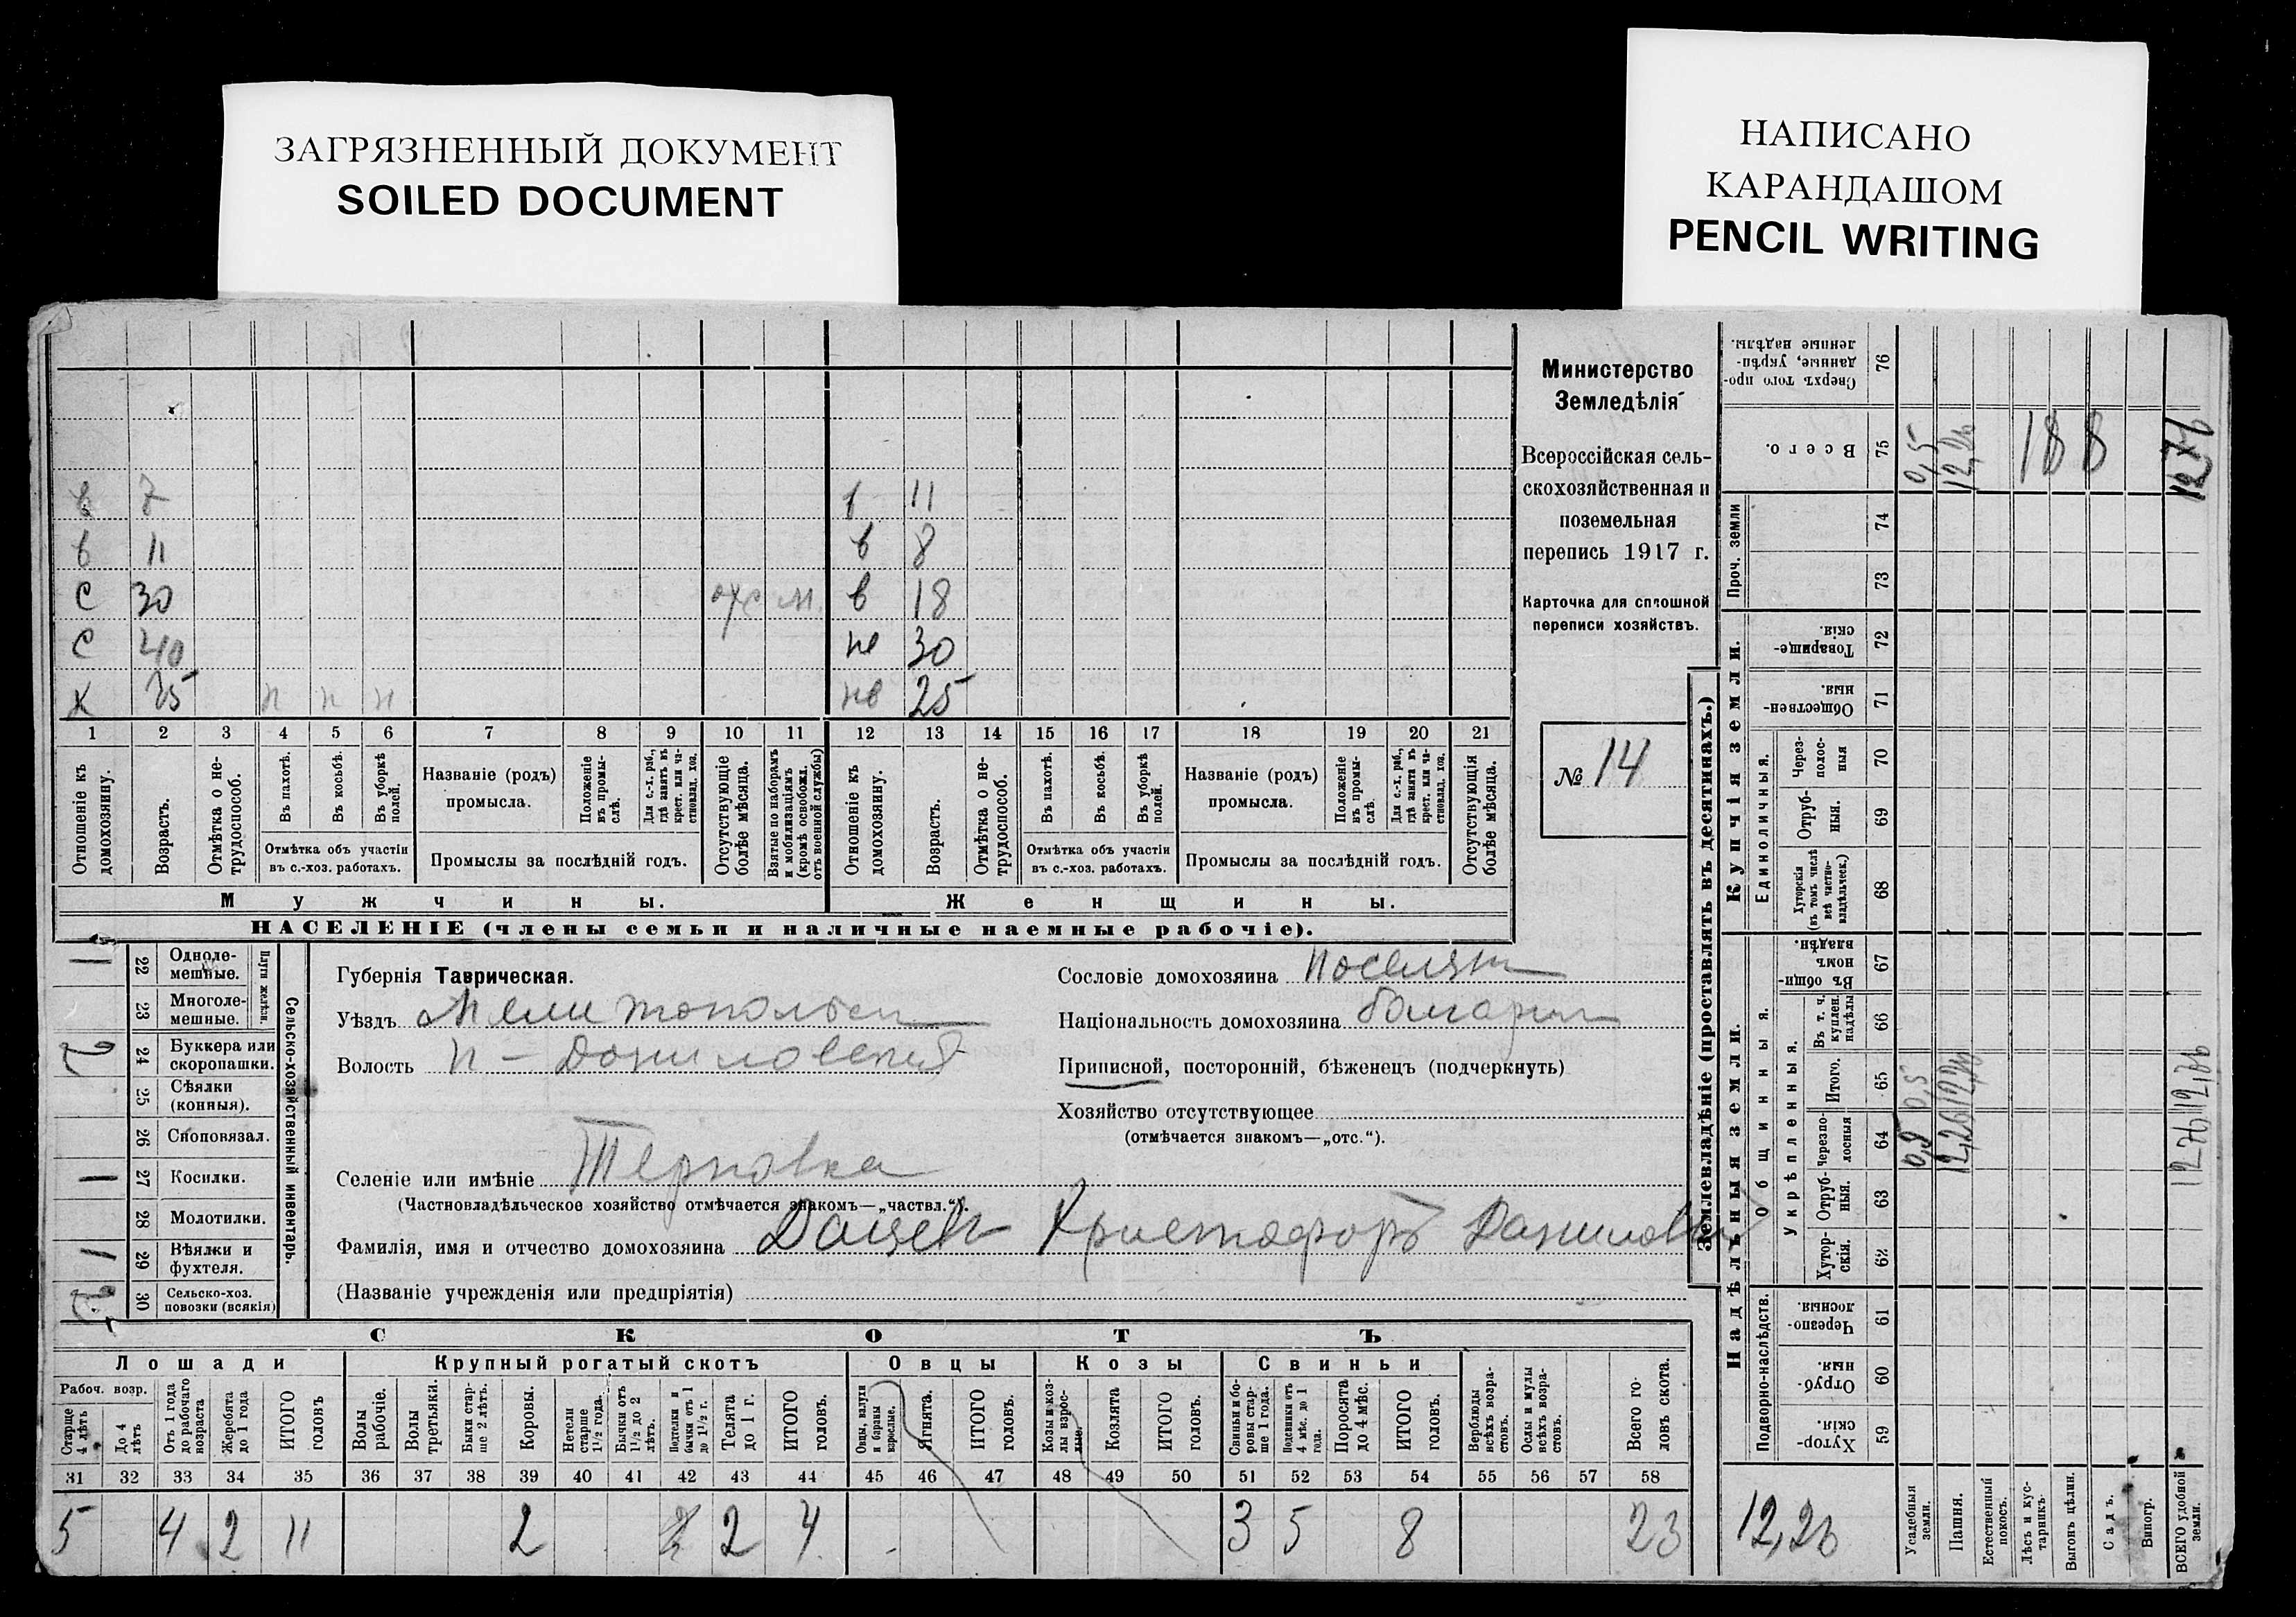 ЗАГРЯЗНЕННЫЙ ДОКУМЕНТ
SOILED DOCUMENT
НАПИСАНО
КАРАНДАШОМ
PENCIL WRITING
в 7 в 11
в 11 в 8
с 30 отс м. в 18
с 40 не 30
х 35 п п п не 25
1 2 3 4 5 6 7 8 9 10 11 12 13 14 15 16 17 18 19 20 21
Отношеніе къ домохозяину.
Возрастъ.
Отмѣтка о не-трудоспособ.
Въ пахотѣ.
Въ косьбѣ.
Въ уборкѣ полей.
Отмѣтка объ участіи
въ с.-хоз. работахъ.
Названіе (родъ)
промысла.
Положеніе въ промы-слѣ.
Для с.-х. раб., гдѣ занятъ въ крест. или ча-стновлад. хоз.
Промыслы за послѣдній годъ.
Отсутствующіе болѣе мѣсяца.
Взятые по наборамъ и мобилизаціямъ (кромѣ освобожд. отъ военной службы)
Отношеніе къ домохозяину.
Возрастъ.
Отмѣтка о не-трудоспособ.
Въ пахотѣ.
Въ косьбѣ.
Въ уборкѣ полей.
Отмѣтка объ участіи
въ с.-хоз. работахъ.
Названіе (родъ)
промысла.
Положеніе въ промы-слѣ.
Для с.-х. раб., гдѣ занята въ крест. или ча-стновлад. хоз.
Промыслы за послѣдній годъ.
Отсутствующія болѣе мѣсяца.
Мужчины.
Женщины.
НАСЕЛЕНІЕ (члены семьи и наличные наемные рабочіе).
Министерство
Земледѣлія
Всероссійская сель-
скохозяйственная и
поземельная
перепись 1917 г.
Карточка для сплошной
переписи хозяйствъ.
№ 14
Сельско-хозяйственный инвентарь.
Плуги желѣзн.
1 22 Одноле-мешные.
23 Многоле-мешные.
2 24 Буккера или скоропашки.
25 Сѣялки (конныя).
26 Сноповязал.
1 27 Косилки.
28 Молотилки.
1 29 Вѣялки и фухтеля.
2 30 Сельско-хоз. повозки (всякія)
Губернія Таврическая.
Уѣздъ Мелитопольск
Волость Н-Даниловская
Селеніе или имѣніе Терновка
(Частновладѣльческое хозяйство отмѣчается знакомъ—„частвл.“).
Фамилія, имя и отчество домохозяина Христофоръ Данилов
(Названіе учрежденія или предпріятія)
Сословіе домохозяина поселян
Національность домохозяина болгарин
Приписной, посторонній, бѣженецъ (подчеркнуть)
Хозяйство отсутствующее
(отмѣчается знакомъ—„отс.“).
СКОТЪ
Лошади
Крупный рогатый скотъ
Овцы
Козы
Свиньи
Рабоч. возр.
Старше 4 лѣтъ
До 4 лѣтъ
Отъ 1 года до рабочаго возраста
Жеребята до 1 года
ИТОГО головъ
Волы рабочіе.
Волы третьяки.
Быки стар-ше 2 лѣтъ.
Коровы.
Нетели старше 1½ года.
Бычки отъ 1½ до 2 лѣтъ.
Подтелки и бычки отъ 1 до 1½ г.
Телята до 1 г.
ИТОГО головъ.
Овцы, валухи и бараны взрослые.
Ягнята.
ИТОГО головъ.
Козы и коз-лы взрос-лые.
Козлята
ИТОГО головъ.
Свиньи и бо-ровы стар-ше 1 года.
Подсвинки отъ 4 мѣс. до 1 года.
Поросята до 4 мѣс.
ИТОГО головъ.
Верблюды всѣхъ возра-стовъ.
Ослы и мулы всѣхъ возра-стовъ.
Всего го-ловъ скота.
31 32 33 34 35 36 37 38 39 40 41 42 43 44 45 46 47 48 49 50 51 52 53 54 55 56 57 58
5 4 2 11 2 2 2 4 3 5 8 23
Землевладѣніе (проставлять въ десятинахъ.)
Надѣльныя земли.
Купчія земли.
Проч. земли
Подворно-наслѣдств.
Общинныя.
Укрѣпленныя.
Единоличныя.
Хутор-скія. 59
Отруб-ныя. 60
Черезпо-лосныя. 61
Хутор-скія. 62
Отруб-ныя. 63
Черезпо-лосныя 64
Итого. 65
Въ т. ч. куплен. надѣлы 66
Въ общин-номъ владѣн. 67
Хуторскія (въ томъ числѣ всѣ частно-владѣльческ.) 68
Отруб-ныя. 69
Через-полос-ныя 70
Обществен-ныя. 71
Товарище-скія. 72
73
74
Всего. 75
Сверхъ того про-данные, укрѣп-ленные надѣлы. 76
12,26
Усадебныя земли. 0,5 0,5 0,5
Пашня. 12,26 12,26 12,26
Естественный покосъ.
Лѣсъ и кус-тарникъ.
Выгонъ цѣлин.
Садъ.
Виногр.
ВСЕГО удобной земли. 12,76 12,76 12,76
188